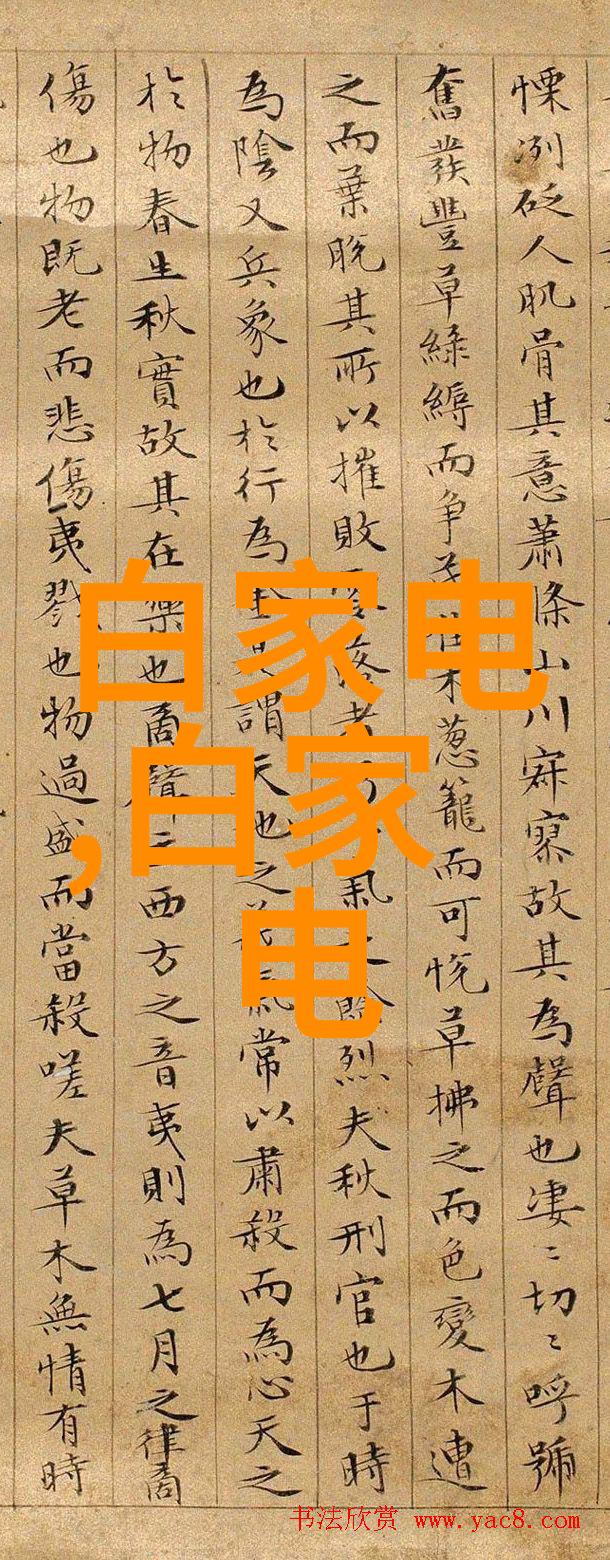 慄冽砭人肌骨其意蕭條山川寂寥故其為聲也淒〻切〻呼號
奮發豐草綠縟而争木葱籠而可悅草拂之而色變木遭
之而葉脫其所以摧敗落者氣餘烈夫秋刑官也于時
為陰又兵象也於行為謂天地之氣常以肅殺而為心天之
於物春生秋實故其在樂也商聲西方之音夷則為七月之律商
傷也物既老而悲傷夷戮也物過盛而當殺嗟夫草木無情有時
白家电
,白家
电
书法欣赏 www.yac8.com